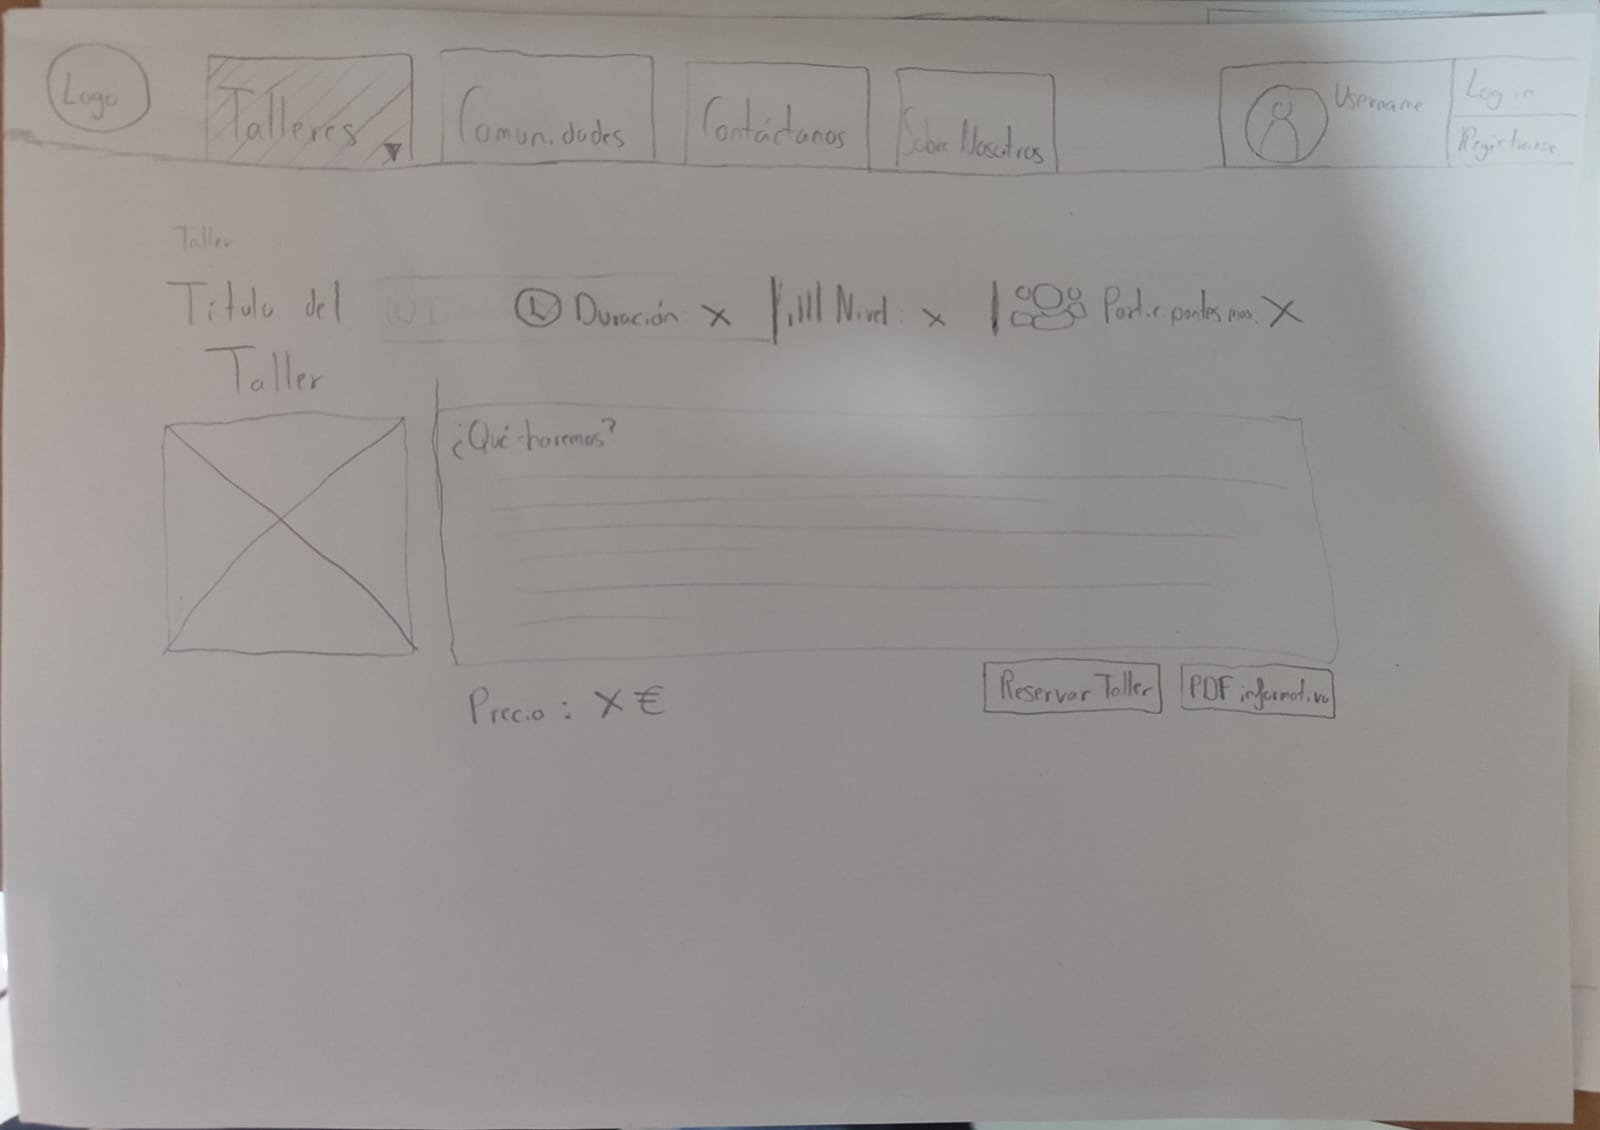 Logo
Talleres
Comunidades
Contáctanos
Sobre Nosotros
Username
Log in
Registrarse
Taller
Título del
Taller
Duración: X
Nivel: X
Participantes max. X
¿Qué haremos?
Precio: X€
Reservar Taller
PDF informativo